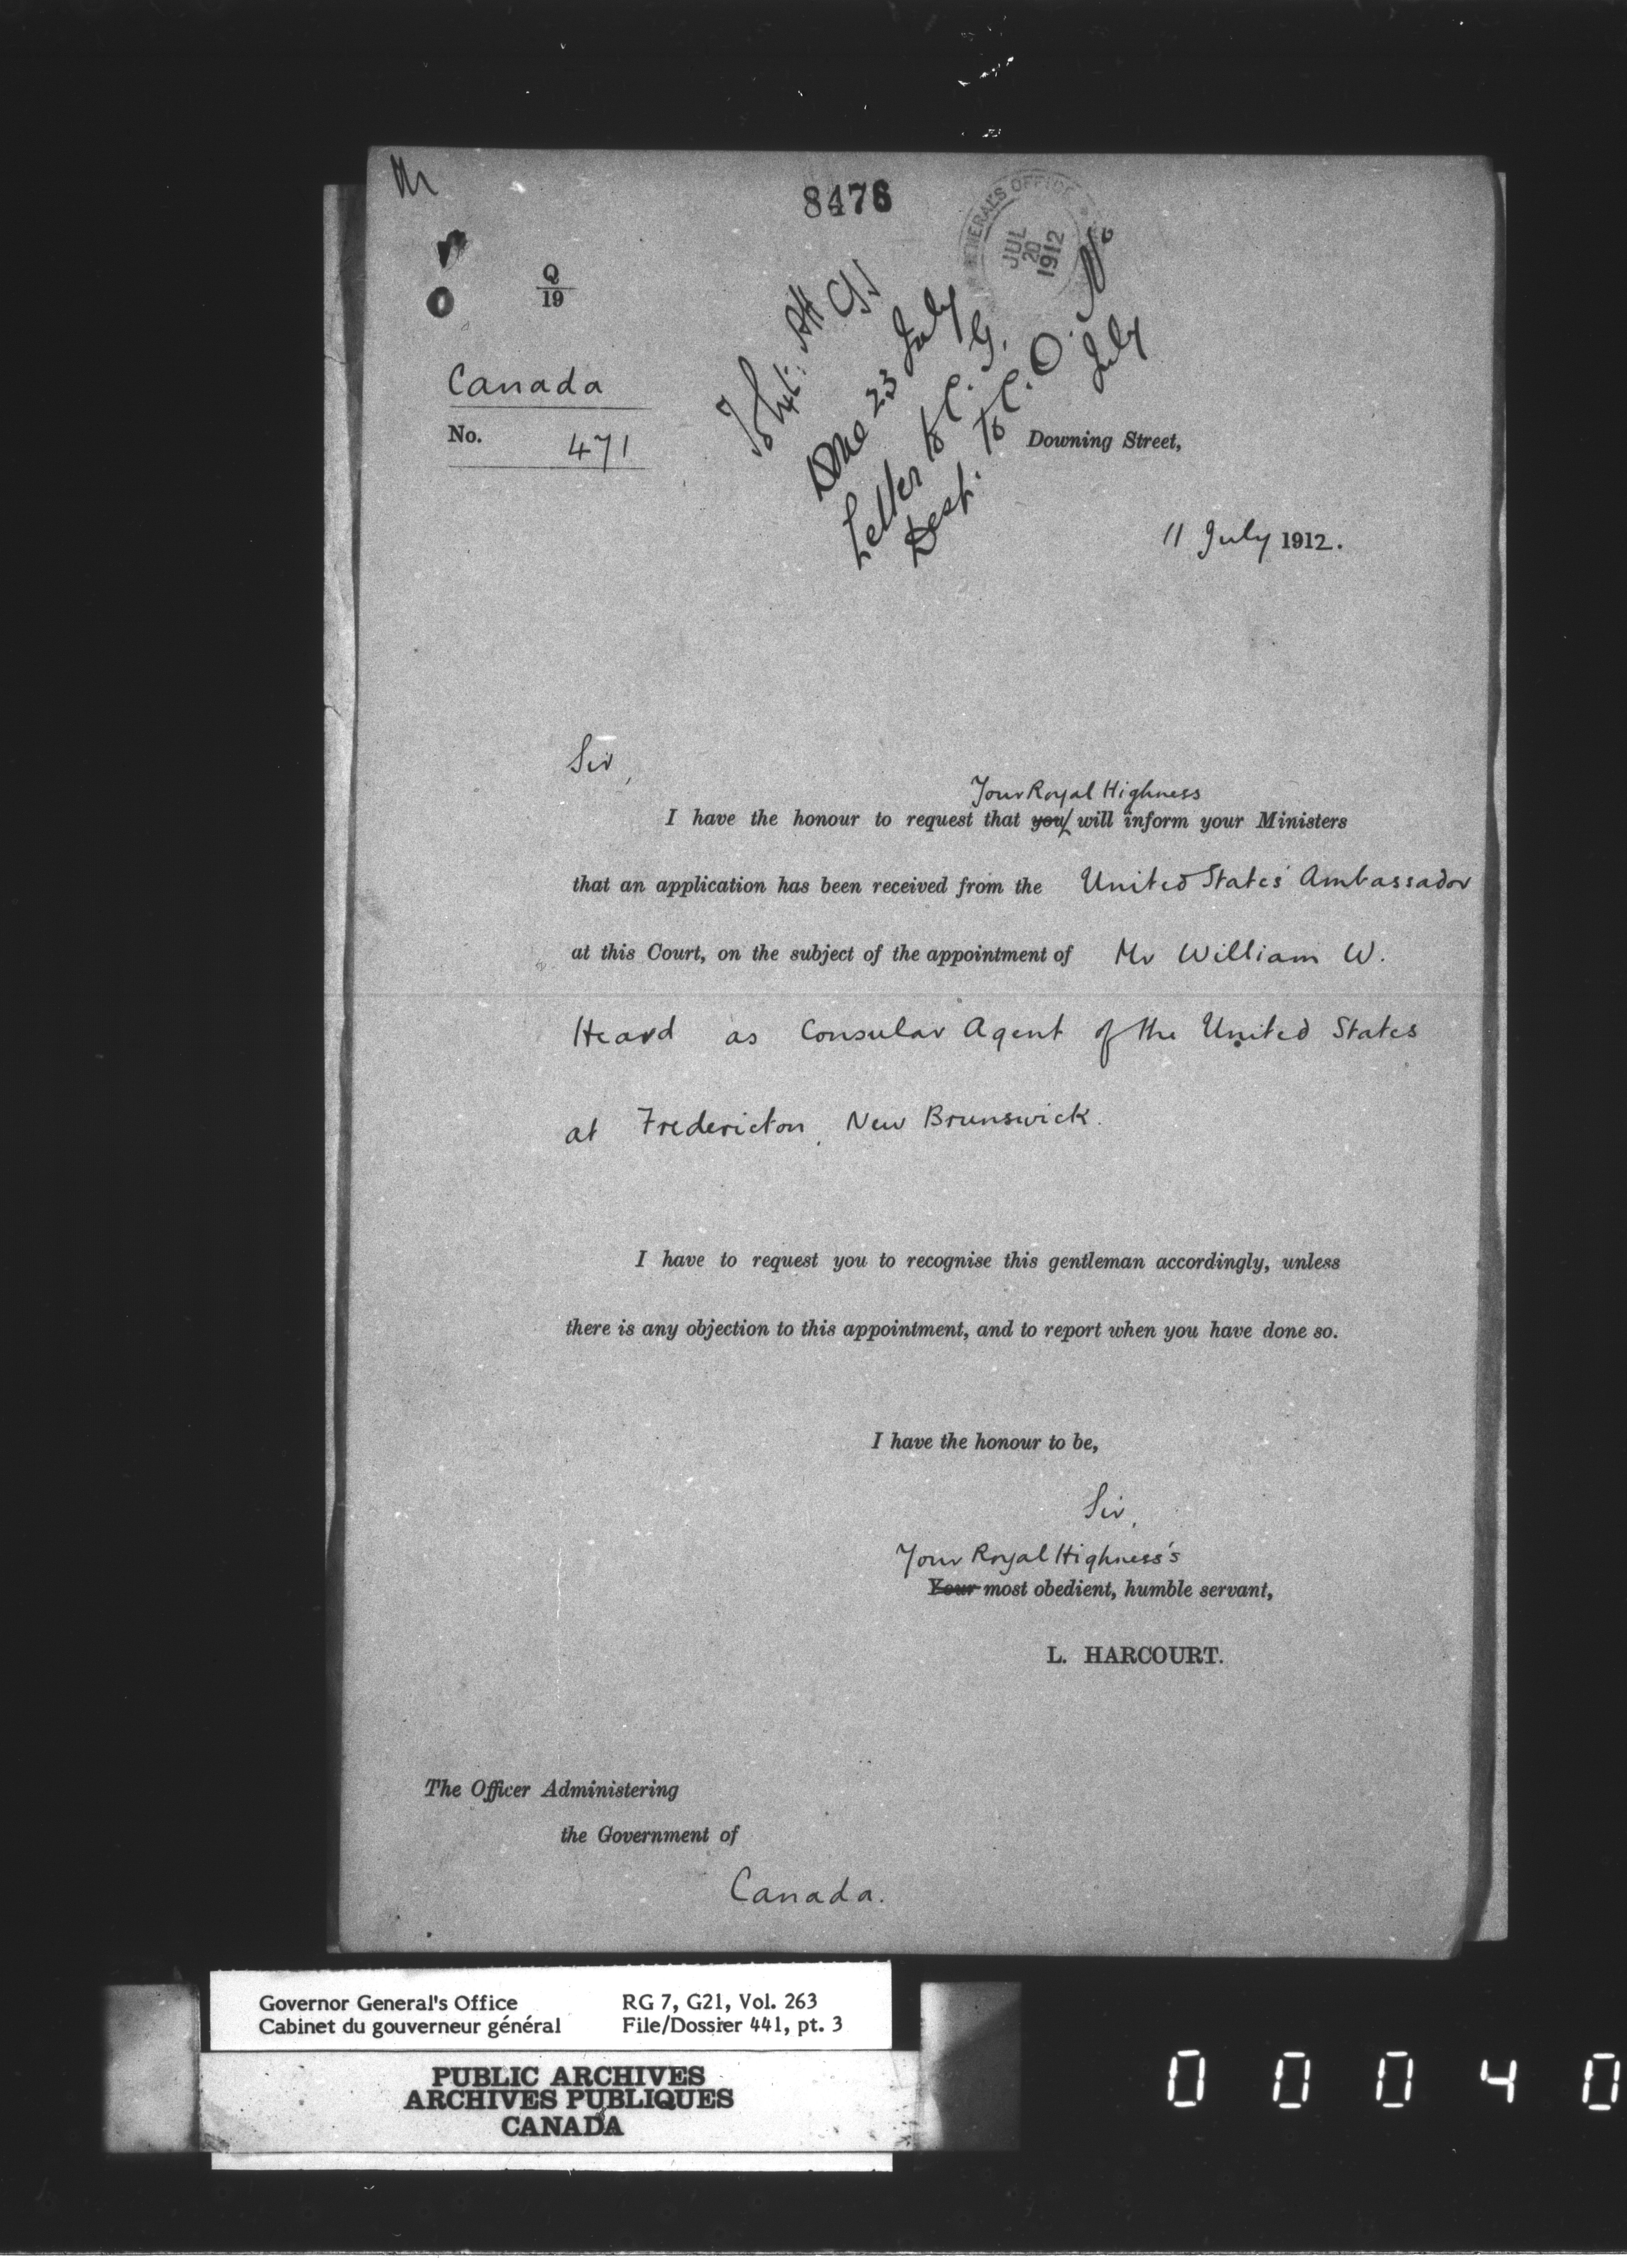 8476
GENERAL'S OFFICE
JUL
20
1912
Q
19
Canada
No. 471
Done 23 July
Letter to C. G.
Desp. to C. O.
July
Downing Street,
11 July 1912.
Sir,
Your Royal Highness
I have the honour to request that you will inform your Ministers
that an application has been received from the United States' Ambassador
at this Court, on the subject of the appointment of Mr William W.
Heard as Consular Agent of the United States
at Fredericton, New Brunswick.
I have to request you to recognise this gentleman accordingly, unless
there is any objection to this appointment, and to report when you have done so.
I have the honour to be,
Sir,
Your Royal Highness's
Your most obedient, humble servant,
L. HARCOURT.
The Officer Administering
the Government of
Canada.
Governor General's Office RG 7, G21, Vol. 263
Cabinet du gouverneur général File/Dossier 441, pt. 3
PUBLIC ARCHIVES
ARCHIVES PUBLIQUES
CANADA
0 0 0 4 0